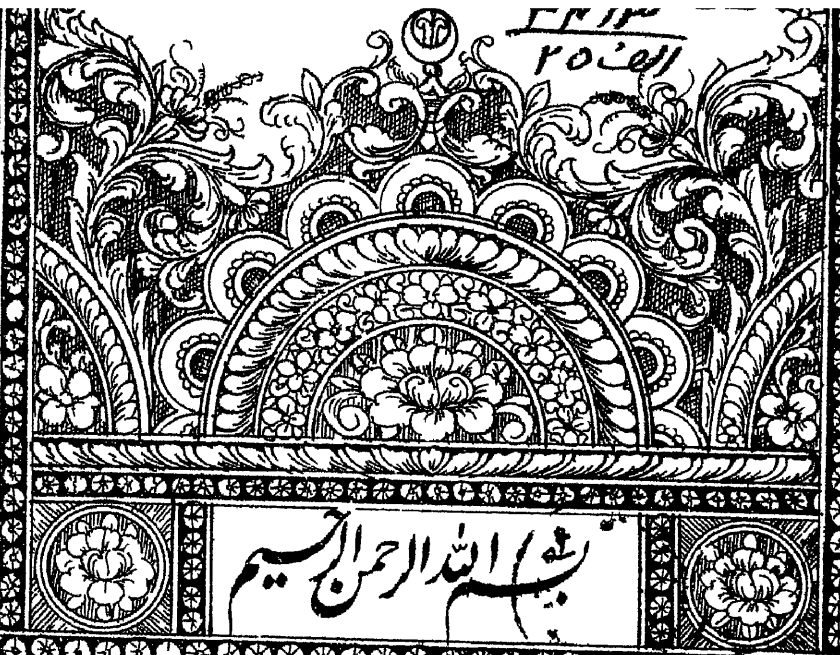 الف ۲۵
بسم الله الرحمن الرحیم